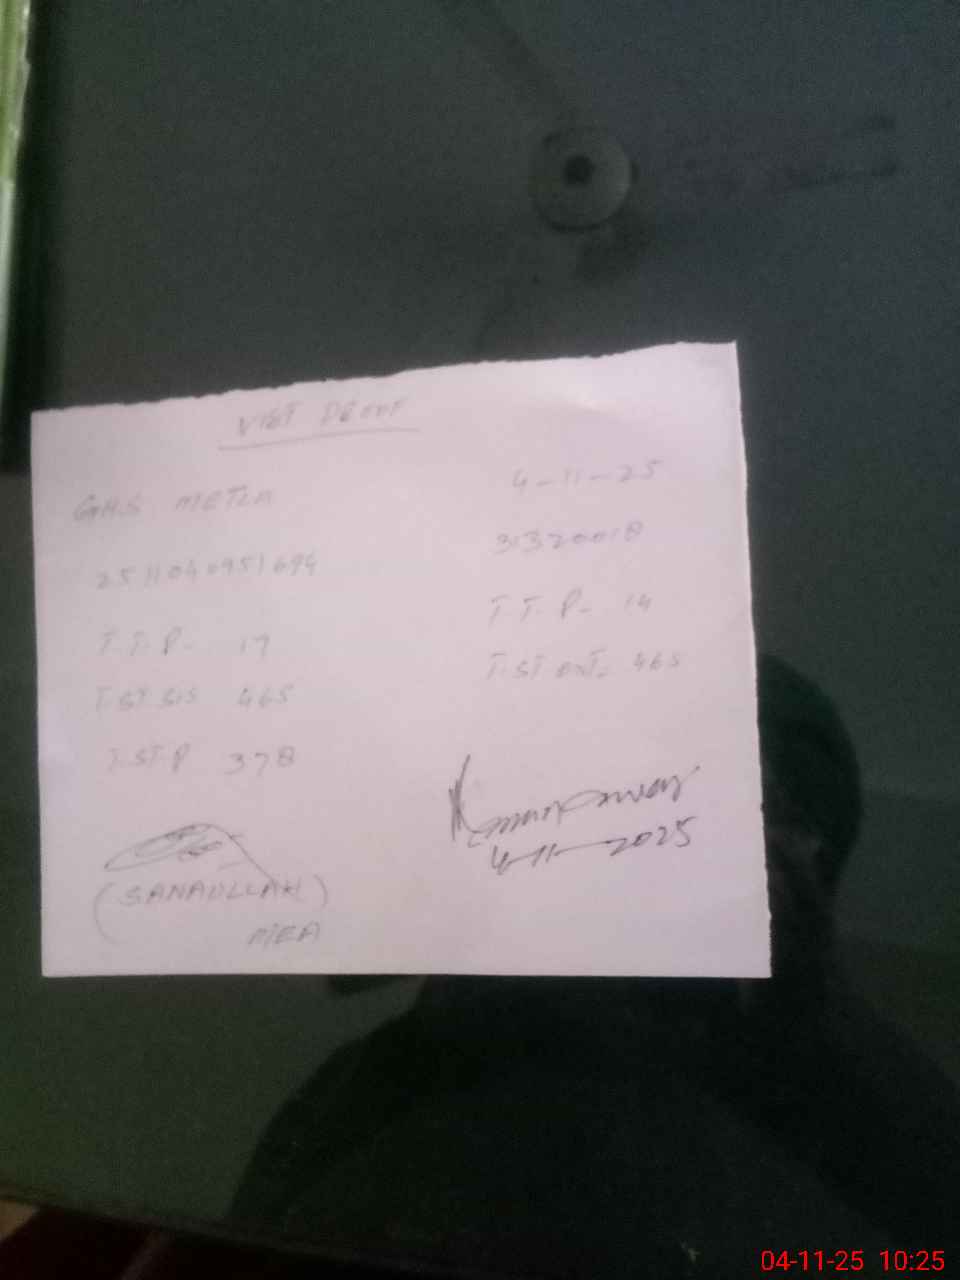 VIST PROOF
GHS METLA 4-11-25
2511040951694 31320018
T.T.P- 17 T.T.P- 14
T.ST.SIS 465 T.ST.ONT- 465
T.ST.P 378
4-11-2025
(SANAULLAH)
MEA
04-11-25 10:25